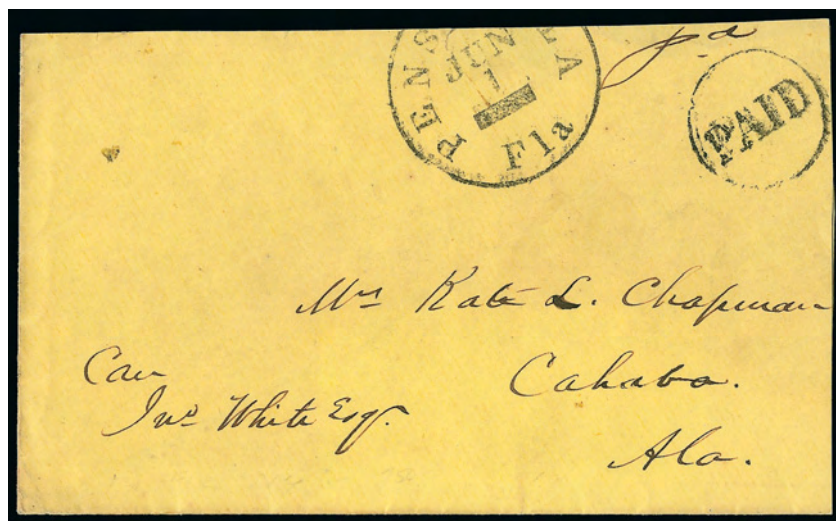 PENSA
JUN
1
Fla
pd
PAID
Mrs Kate L. Chapman
Cahaba.
Ala.
Care
Jno White Esqr.